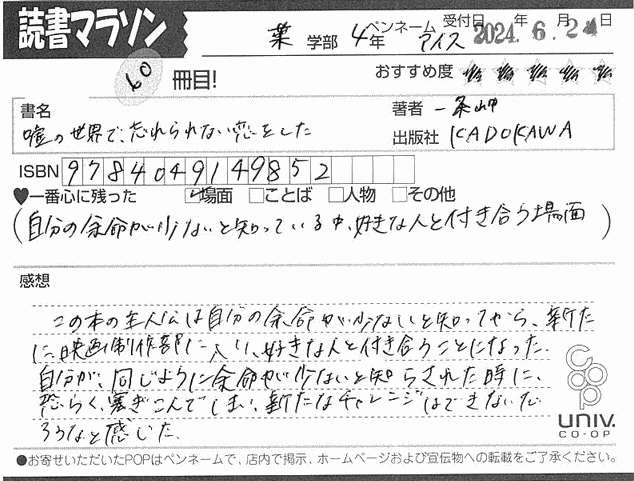 読書マラソン
薬 学部 4年
ペンネーム アイス
受付日 2024年 6月 2 日
60 冊目!
おすすめ度 ★★★★★
書名
嘘の世界で、忘れられない恋をした
著者 一条岬
出版社 KADOKAWA
ISBN 9784049149852
♥一番心に残った ☑場面 □ことば □人物 □その他
(自分の余命が少ないと知っている中、好きな人と付き合う場面)
感想
この本の主人公は自分の余命が少ないと知ってから、新た
に、映画制作部に入り、好きな人と付き合うことになった。
自分が、同じように余命が少ないと知らされた時に、
恐らく、塞ぎこんでしまい、新たなチャレンジはできないだ
ろうなと感じた。
coop
UNIV.
CO-OP
●お寄せいただいたPOPはペンネームで、店内で掲示、ホームページおよび宣伝物への転載をご了承ください。